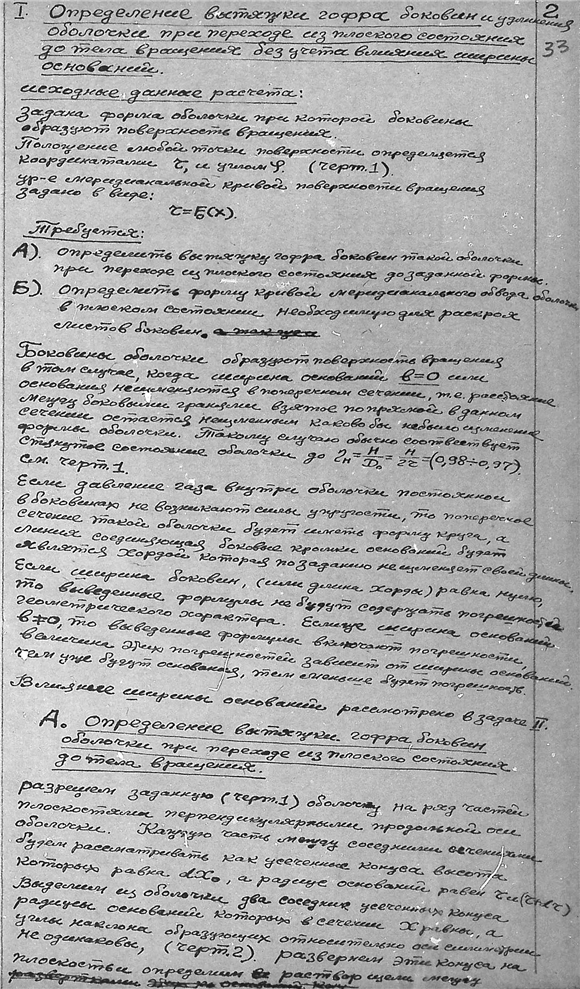 2
33
I. Определение вытяжки гофра боковин и удлинения
оболочки при переходе из плоского состояния
до тела вращения без учета влияния ширины
оснований.
исходные данные расчета:
Задана форма оболочки при которой боковины
образуют поверхность вращения.
Положение любой точки поверхности определяется
координатами τ, и углом φ. (черт.1).
ур-е меридианальной кривой поверхности вращения
задано в виде:
τ=ξ(x).
Требуется:
А). определить вытяжку гофра боковин такой оболочки
при переходе из плоского состояния до заданной формы.
Б). Определить форму кривой меридианального обвода оболочки
в плоском состоянии необходимую для раскроя
листов боковин.
Боковины оболочки образуют поверхность вращения
в том случае, когда ширина оснований b=0 или
основания неизменяются в поперечном сечении, т.е. расстояние
между боковыми гранями взятое по прямой в данном
сечении остается неизменным каково бы небыло изменение
формы оболочки. Такому случаю обычно соответствует
стянутое состояние оболочки до = H/D₀ = H/2τ = (0,98÷0,97).
см. черт.1.
Если давление газа внутри оболочки постоянно и
в боковинах не возникают силы упругости, то поперечное
сечение такой оболочки будет иметь форму круга, а
линия соединяющая боковые кромки оснований будет
является хордой которая по заданию не изменяет своей длины.
Если ширина боковин, (или длина хорды) равна нулю,
то выведенные формулы не будут содержать погрешностей
геометрического характера. Если же ширина оснований
b≠0, то выведенные формулы включают погрешности,
величина этих погрешностей зависит от ширины оснований.
чем уже будут основания, тем меньше будет погрешность
Влияние ширины оснований рассмотрено в задаче II.
А. Определение вытяжки гофра боковин
оболочки при переходе из плоского состояния
до тела вращения.
разрешем заданную (черт.1) оболочку на ряд частей
плоскостями перпендикулярными продольной оси
оболочки. Каждую часть между соседними сечениями
будем рассматривать как усеченные конуса высота
которых равна dX₀, а радиус оснований равен τ и (τ+dτ)
Выделим из оболочки два соседних усеченных конуса
радиусы оснований которых в сечении X равны, а
углы наклона образующих относительно оси симметрии
не одинаковы, (черт.2). развернем эти конуса на
плоскость и определим раствор щели между